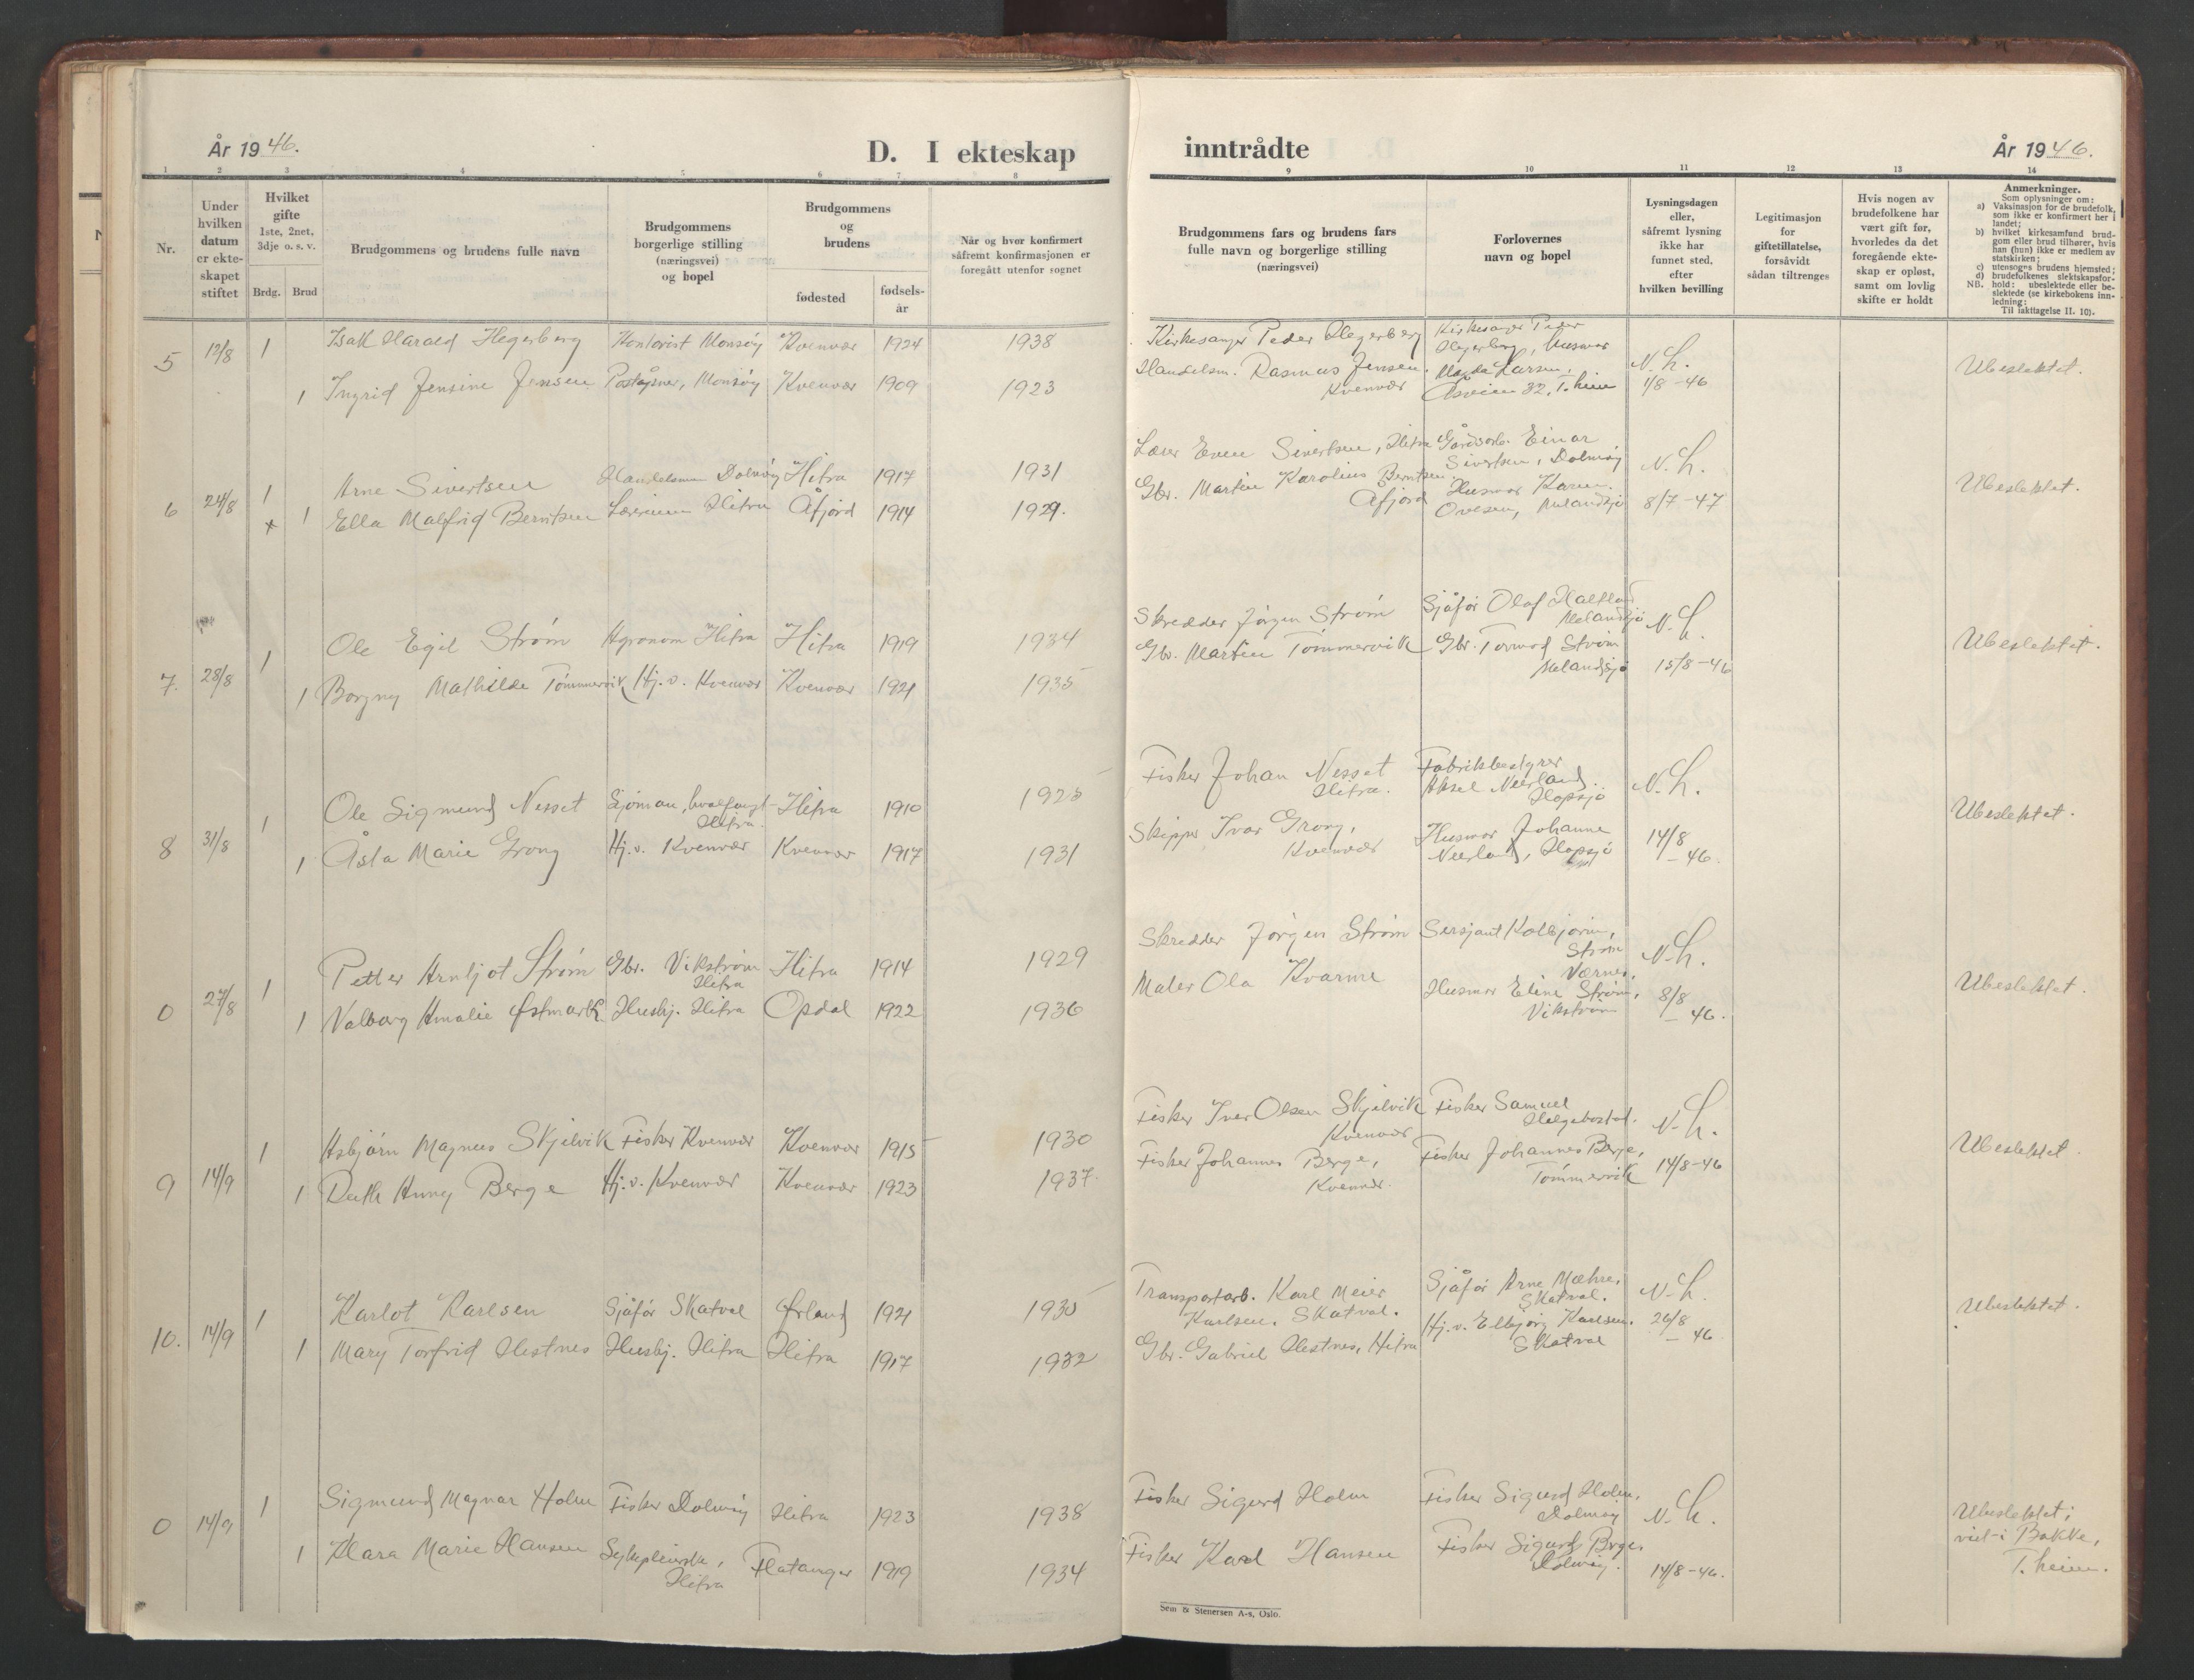 År 1946.
D. I ekteskap
inntrådte
År 1946.
1 2 3 4 5 6 7 8 9 10 11 12 13 14
Nr.
Under
hvilken
datum
er ekte-
skapet
stiftet
Hvilket
gifte
1ste, 2net,
3dje o. s. v.
Brdg. Brud
Brudgommens og brudens fulle navn
Brudgommens
borgerlige stilling
(næringsvei)
og bopel
Brudgommens
og
brudens
fødested
fødsels-
år
Når og hvor konfirmert
såfremt konfirmasjonen er
foregått utenfor sognet
Brudgommens fars og brudens fars
fulle navn og borgerlige stilling
(næringsvei)
Forlovernes
navn og bopel
Lysningsdagen
eller,
såfremt lysning
ikke har
funnet sted,
efter
hvilken bevilling
Legitimasjon
for
giftetillatelse,
forsåvidt
sådan tiltrenges
Hvis nogen av
brudefolkene har
vært gift før,
hvorledes da det
foregående ekte-
skap er opløst,
samt om lovlig
skifte er holdt
Anmerkninger.
Som oplysninger om:
a) Vaksinasjon for de brudefolk,
som ikke er konfirmert her i
landet;
b) hvilket kirkesamfund brud-
gom eller brud tilhører, hvis
han (hun) ikke er medlem av
statskirken;
c) utensogns brudens hjemsted;
d) brudefolkenes slektskapsfor-
NB. hold: ubeslektede eller be-
slektede (se kirkebokens inn-
ledning:
Til iakttagelse II. 10).
5 12/8 1 Isak Harald Hegerberg Kontorist Monsøy Kvenvær 1924 1938
1 Ingrid Jensine Jensen Poståpner, Monsøy Kvenvær 1909 1923
Kirkesanger Peder Hegerberg
Handelsm. Rasmus Jensen.
Kvenvær
Kirkesanger Peder
Hegerberg, Husmor
Magda Larsen,
Åsveien 32, T.heim
N.h.
1/8-46
Ubeslektet.
6 24/8 1 Arne Sivertsen Handelsmann Dolmøy Hitra 1917 1931
x 1 Ella Malfrid Berntsen Lærerinne Hitra Åfjord 1914 1929.
Lærer Even Sivertsen, Hitra
Gbr. Martin Karolius Berntsen.
Åfjord
Gårdsarb. Einar
Sivertsen, Dolmøy
Husmor Karen
Ovesen, Melandsjø
N.h.
8/7-47
Ubeslektet.
7. 28/8 1 Ole Egil Strøm Agronom Hitra Hitra 1919 1934
1 Borgny Mathilde Tømmervik Hj.v. Kvenvær Kvenvær 1921 1935
Skredder Jørgen Strøm
Gbr. Martin Tømmervik
Sjåfør Olaf
Melandsjø
Gbr. Tormod Strøm
Melandsjø
N.h.
15/8-46
Ubeslektet.
8 31/8 1 Ole Sigmund Nesset Sjømann, hvalfangst Hitra. Hitra 1910 1925
1 Åsta Marie Grong Hj.v. Kvenvær Kvenvær 1917 1931
Fisker Johan Nesset
Hitra.
Skipper Ivar Grong,
Kvenvær
Fabrikbestyrer
Aksel Neerland.
Hopsjø
Husmor Johanne
Neerland, Hopsjø
N.h.
14/8
-46.
Ubeslektet.
0 27/8 1 Petter Arnljot Strøm Gbr. Vikstrøm Hitra Hitra 1914 1929
1 Valborg Amalie Østmark Husbj. Hitra Opdal 1922 1936
Skredder Jørgen Strøm
Maler Ola Kvarme
Sersjant Kolbjørn,
Strøm
Værnes.
Husmor Eline Strøm,
Vikstrøm
N.h.
8/8
-46.
Ubeslektet.
9 14/9 1 Asbjørn Magnus Skjelvik Fisker Kvenvær Kvenvær 1915 1930
1 Ruth Anny Berge Hj.v. Kvenvær Kvenvær 1923 1937.
Fisker Iver Olsen Skjelvik
Kvenvær
Fisker Johannes Berge,
Kvenvær.
Fisker Samuel
Helgebostad.
Fisker Johannes Berge,
Tømmervik
N.h.
14/8-46
Ubeslektet.
10. 14/9 1 Karlot Karlsen Sjåfør Skatval Ørland 1921 1935
1 Mary Torfrid Hestnes Husbj. Hitra Hitra 1917 1932
Transportarb. Karl Meier
Karlsen. Skatval.
Gbr. Gabriel Hestnes, Hitra
Sjåfør Arne Mæhre,
Skatval.
Hj.v. Elbjørg Karlsen.
Skatval
N.h.
26/8
-46
Ubeslektet.
0 14/9 1 Sigmund Magnar Holm Fisker Dolmøy Hitra 1923 1938
1 Klara Marie Hansen Sykepleierske, Hitra Flatanger 1919 1934
Fisker Sigurd Holm
Fisker Karl Hansen
Fisker Sigurd Holm,
Dolmøy
Fisker Sigurd
Dolmøy.
N.h.
14/8-46.
Ubeslektet;
viet i Bakke,
T.heim.
Sem & Stenersen A-s, Oslo.